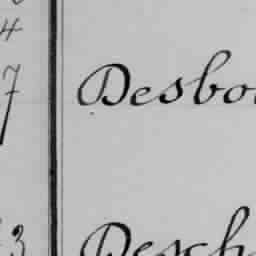 4
7 Desbo
3 Desch